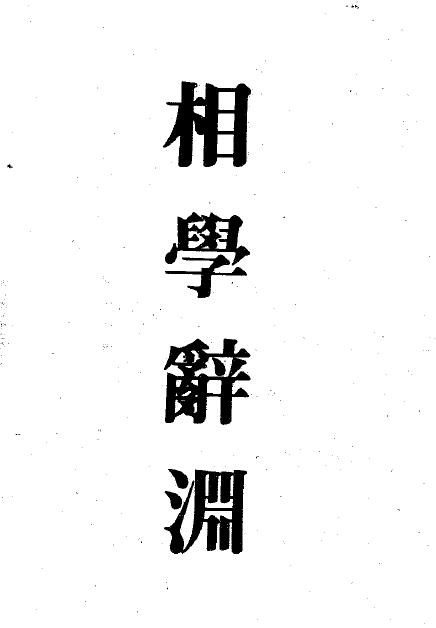 相學辭淵